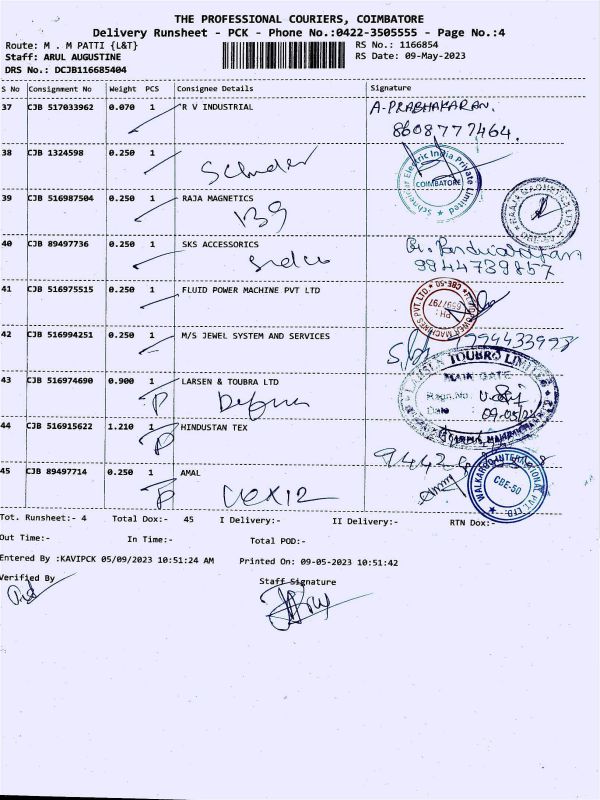 THE PROFESSIONAL COURIERS, COIMBATORE
Delivery Runsheet - PCK - Phone No.:0422-3505555 - Page No.:4
Route: M . M PATTI {L&T} RS No.: 1166854
Staff: ARUL AUGUSTINE RS Date: 09-May-2023
DRS No.: DCJB116685404
S No Consignment No Weight PCS Consignee Details Signature
37 CJB 517033962 0.070 1 R V INDUSTRIAL A-PRABHAKARAN.
8608777464.
38 CJB 1324598 0.250 1
Schneider Electric India Private Limited
COIMBATORE
39 CJB 516987504 0.250 1 RAJA MAGNETICS
139
RAAJA MAGNETICS LTD
40 CJB 89497736 0.250 1 SKS ACCESSORICS
Sidco
9944739857
41 CJB 516975515 0.250 1 FLUID POWER MACHINE PVT LTD
FLUID POWER MACHINES PVT. LTD. CBE-50
PH :
42 CJB 516994251 0.250 1 M/S JEWEL SYSTEM AND SERVICES
43 CJB 516974690 0.900 1 LARSEN & TOUBRA LTD
LARSEN & TOUBRO LIMITED
MAIN GATE
Regn.No.
Date : 09.05/23
44 CJB 516915622 1.210 1 HINDUSTAN TEX
9442
45 CJB 89497714 0.250 1 AMAL
WALKAROO INTERNATIONAL PVT. LTD.
CBE-50
Tot. Runsheet:- 4 Total Dox:- 45 I Delivery:- II Delivery:- RTN Dox:-
Out Time:- In Time:- Total POD:-
Entered By :KAVIPCK 05/09/2023 10:51:24 AM Printed On: 09-05-2023 10:51:42
Verified By Staff Signature